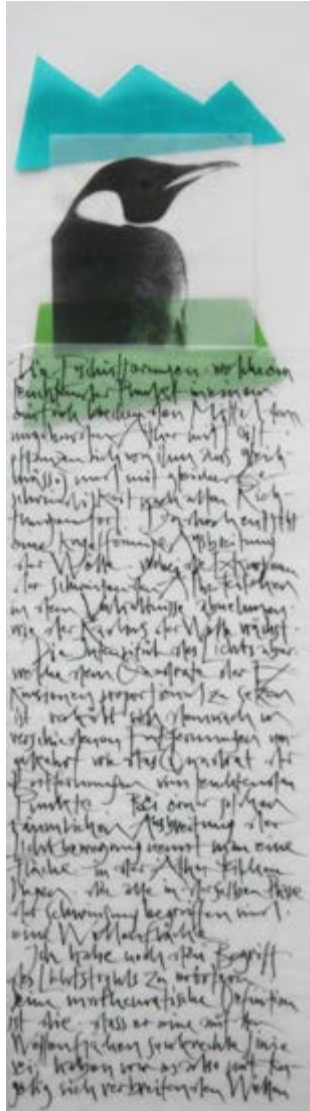 Die Erschütterungen welche ein
leuchtender Punkt in einem
einfach brechenden Mittel dem
umgebenden Äther mitteilt
pflanzen sich von ihm aus gleich-
mässig und mit gleicher Ge-
schwindigkeit nach allen Rich-
tungen fort. Dadurch entsteht
eine kugelförmige Ausbreitung
der Welle wobei die Exkursionen
der schwingenden Ätherteilchen
in dem Verhältnisse abnehmen
wie der Radius der Welle wächst.
Die Intensität des Lichts aber
welche dem Quadrate der Ex-
kursionen proportional zu setzen
ist verhält sich demnach in
verschiedenen Entfernungen um-
gekehrt wie das Quadrat der
Entfernungen vom leuchtenden
Punkte. Bei einer solchen
räumlichen Ausbreitung der
Lichtbewegung nennt man eine
Fläche in der Äther teilchen
liegen die alle in derselben Phase
der Schwingung begriffen sind
eine Wellenfläche.
Ich habe noch den Begriff
des Lichtstrahls zu erörtern
seine mathematische Definition
ist die dass er eine auf den
Wellenflächen senkrechte Linie
sei; haben wir es also mit ku-
gelig sich verbreitenden Wellen